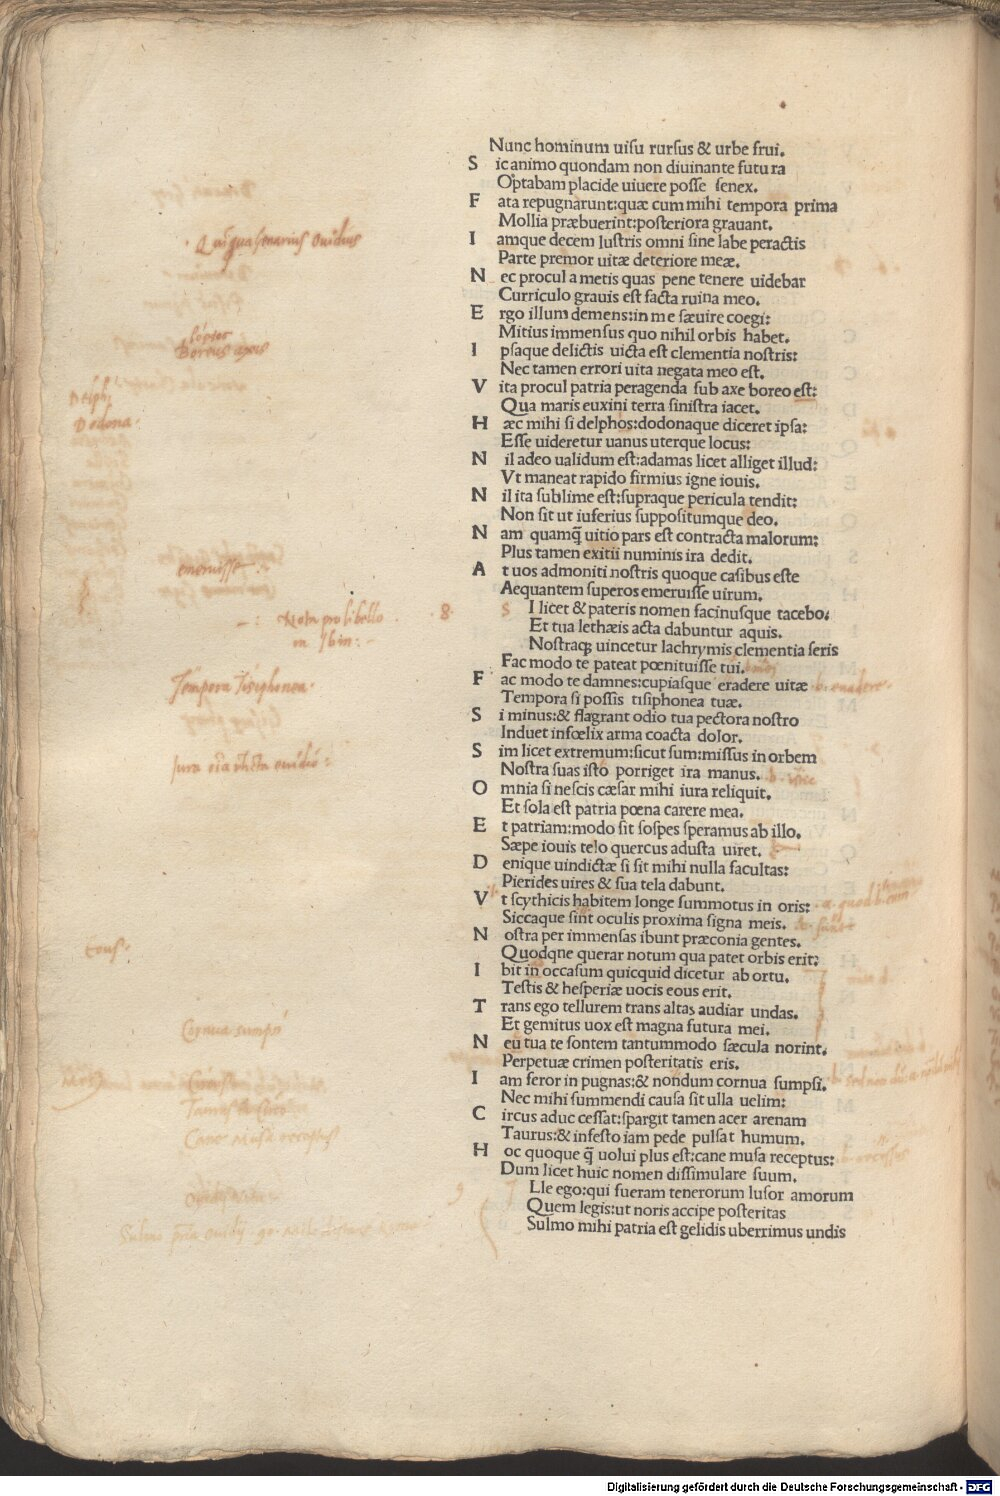 Nunc hominum uisu rursus & urbe frui.
S ic animo quondam non diuinante futura
Optabam placide uiuere posse senex.
F ata repugnarunt:quæ cum mihi tempora prima
Mollia præbuerint:posteriora grauant.
I amque decem lustris omni sine labe peractis
Parte premor uitæ deteriore meæ.
N ec procul a metis quas pene tenere uidebar
Curriculo grauis est facta ruina meo.
E rgo illum demens:in me sæuire coegi:
Mitius immensus quo nihil orbis habet.
I psaque delictis uicta est clementia nostris:
Nec tamen errori uita negata meo est.
V ita procul patria peragenda sub axe boreo est:
Qua maris euxini terra sinistra iacet.
H æc mihi si delphos:dodonaque diceret ipsa:
Esse uideretur uanus uterque locus:
N il adeo ualidum est:adamas licet alliget illud:
Vt maneat rapido firmius igne iouis.
N il ita sublime est:supraque pericula tendit:
Non sit ut iuferius suppositumque deo.
N am quamq̃ uitio pars est contracta malorum:
Plus tamen exitii numinis ira dedit.
A t uos admoniti nostris quoque casibus este
Aequantem superos emeruisse uirum.
8. S I licet & pateris nomen facinusque tacebo.
Et tua lethæis acta dabuntur aquis.
Nostraq; uincetur lachrymis clementia seris
Fac modo te pateat pœnituisse tui.
F ac modo te damnes:cupiasque eradere uitæ
Tempora si possis tisiphonea tuæ.
S i minus:& flagrant odio tua pectora nostro
Induet infœlix arma coacta dolor.
S im licet extremum:sicut sum:missus in orbem
Nostra suas isto porriget ira manus.
O mnia si nescis cæsar mihi iura reliquit.
Et sola est patria pœna carere mea.
E t patriam:modo sit sospes speramus ab illo.
Sæpe iouis telo quercus adusta uiret.
D enique uindictæ si sit mihi nulla facultas:
Pierides uires & sua tela dabunt.
V t scythicis habitem longe summotus in oris:
Siccaque sint oculis proxima signa meis.
N ostra per immensas ibunt præconia gentes.
Quodqne querar notum qua patet orbis erit:
I bit in occasum quicquid dicetur ab ortu.
Testis & hesperiæ uocis eous erit.
T rans ego tellurem trans altas audiar undas.
Et gemitus uox est magna futura mei.
N eu tua te sontem tantummodo sæcula norint.
Perpetuæ crimen posteritatis eris.
I am feror in pugnas:& nondum cornua sumpsi.
Nec mihi summendi causa sit ulla uelim:
C ircus aduc cessat:spargit tamen acer arenam
Taurus:& infesto iam pede pulsat humum.
H oc quoque q̃ uolui plus est:cane musa receptus:
Dum licet huic nomen dissimulare suum.
9 I Lle ego:qui fueram tenerorum lusor amorum
Quem legis:ut noris accipe posteritas
Sulmo mihi patria est gelidis uberrimus undis
Quiquagenarius Ouidius
Boreus axis
Delphi
Dodona
emeruisse
Nota pro libello
in Ibin:
Tempora Tisiphonea.
eous.
Cornua sumpsi
Cane musa receptus
b. eradere.
Digitalisierung gefördert durch die Deutsche Forschungsgemeinschaft - DFG